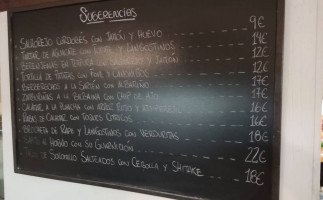 Sugerencias
Salmorejo Cordobés con Jamón y Huevo 9€
Tartar de Aguacate con Tomate y Langostinos 14€
Berenjenas en Tempura de Salmorejo y Jamón 12€
Tortilla de Patatas con Foie y 12€
Berberechos a la Sartén con Albariño 17€
Zamburiñas a la Bilbaína con Chip de Ajo 17€
Calamar a la Plancha con Arroz Rojo y 16€
Rabas de Calamar con Toques Cítricos 16€
Brocheta de Rape y Langostinos con Verduritas 18€
al Horno con su Guarnición 22€
de Solomillo Salteados con Cebolla y Shitake 18€